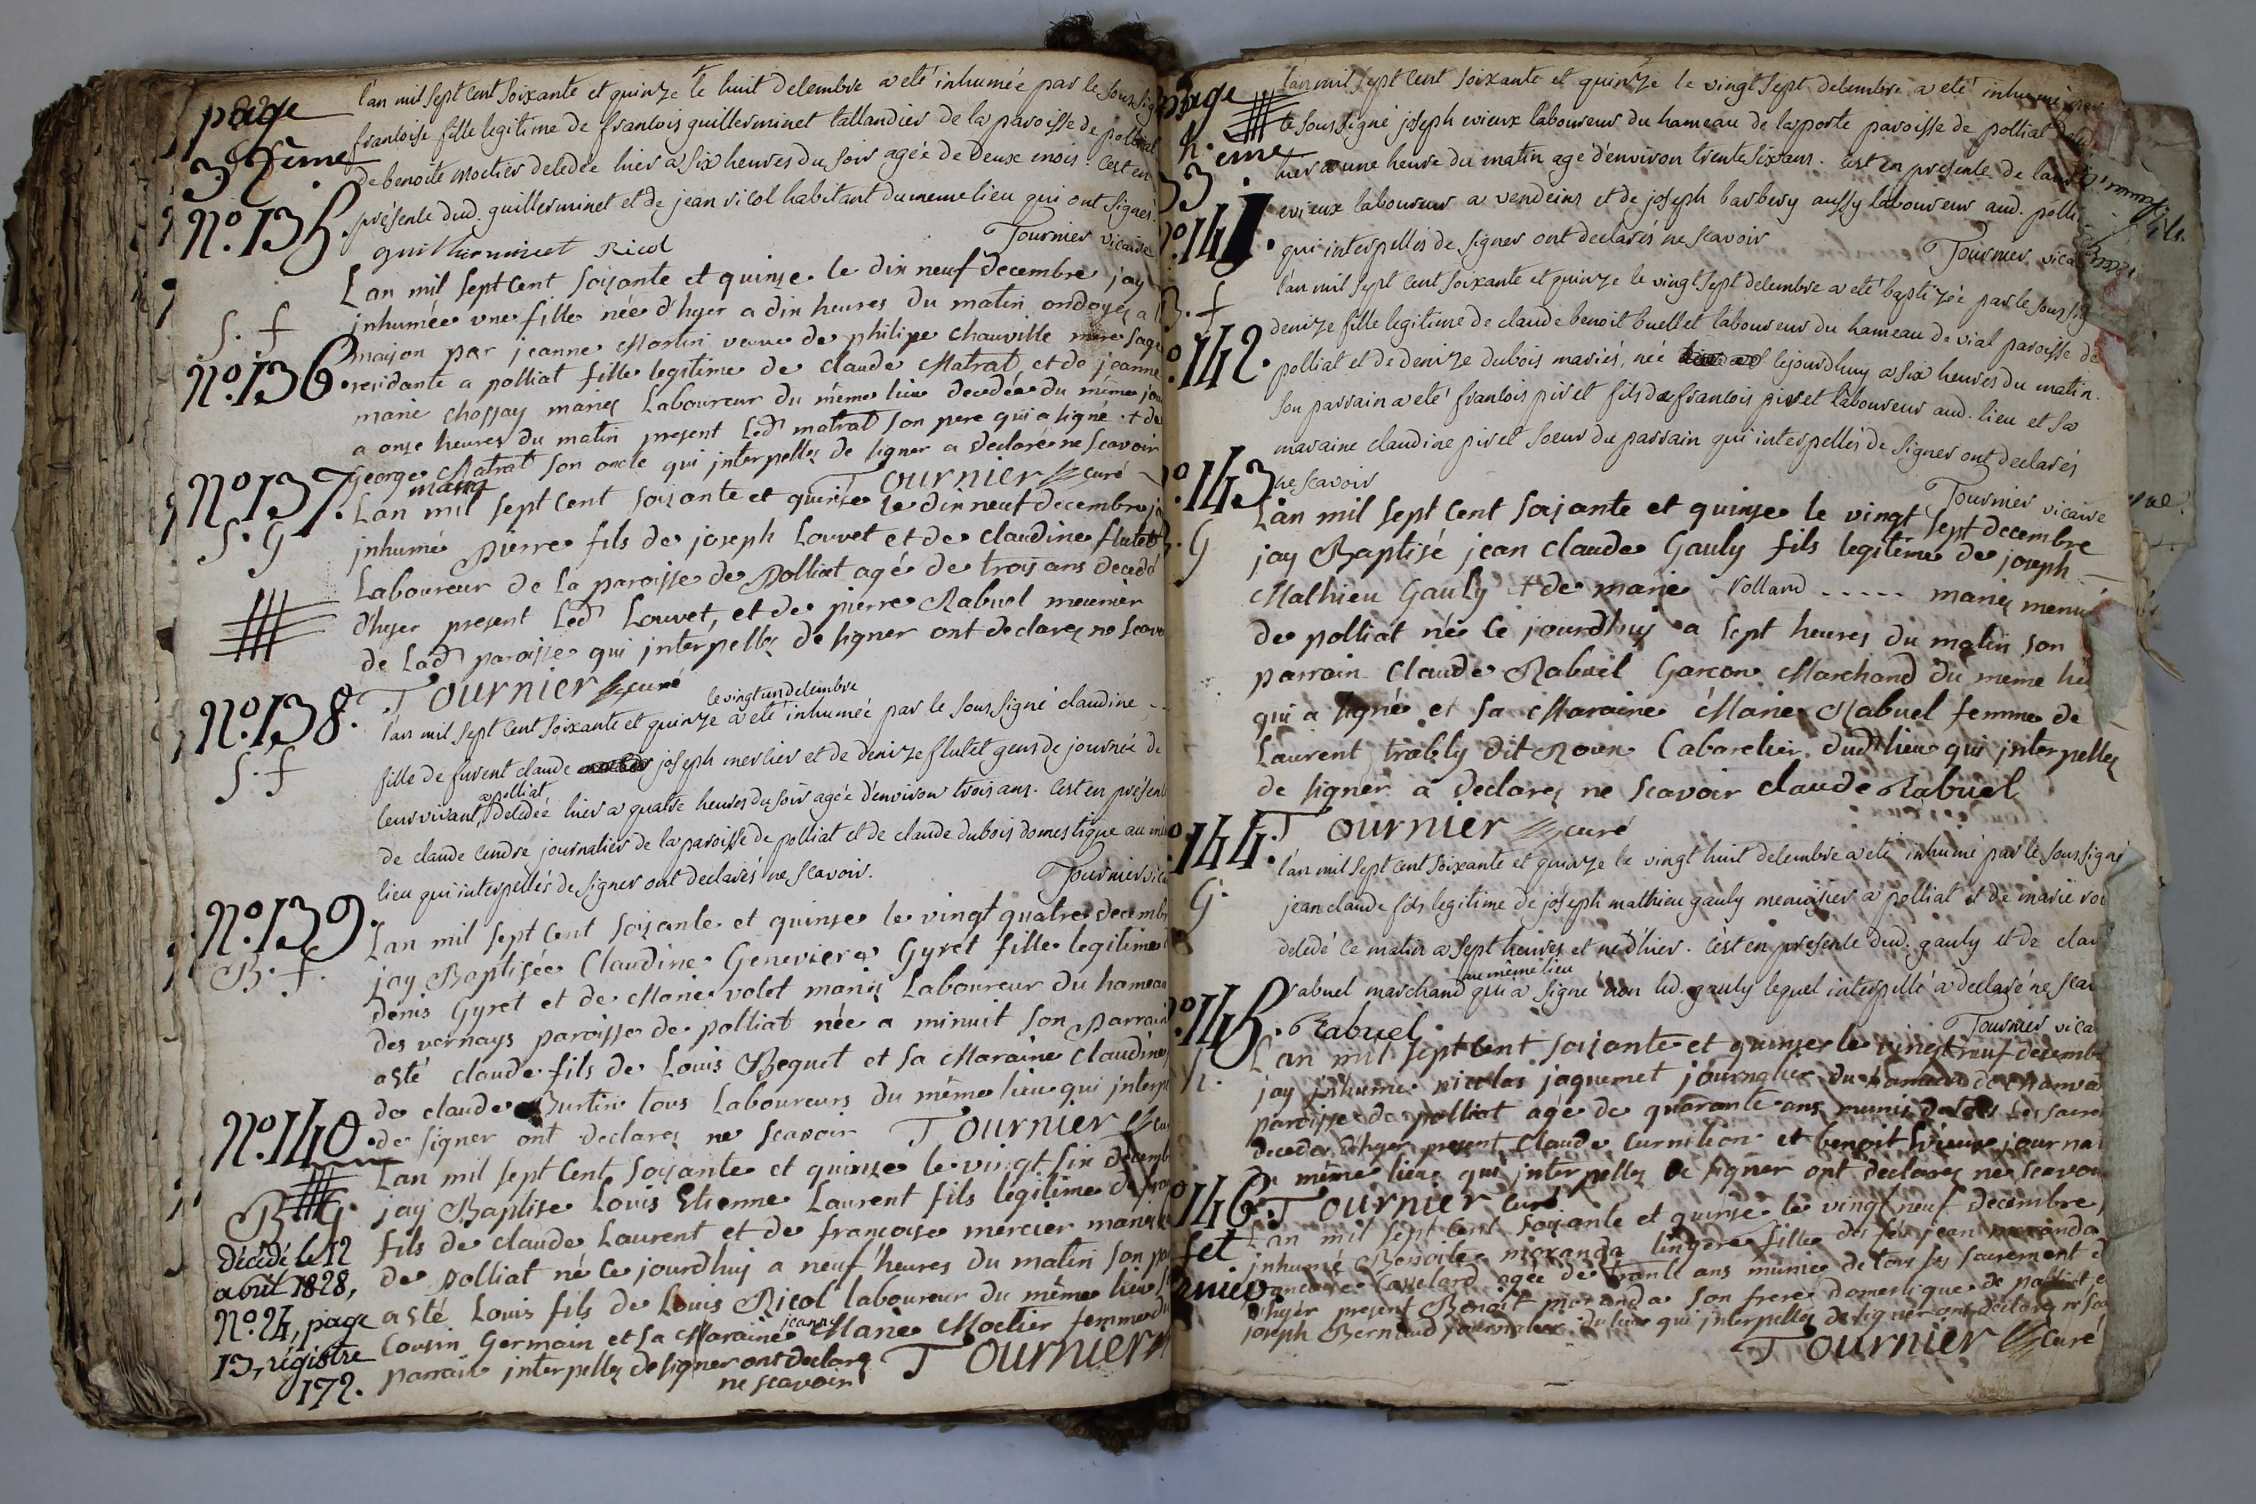 page
32ème
l'an mil sept cent soixante et quinze le huit decembre a eté inhumée par le soussig
francoise fille legitime de francois guillerminet tallandier de la paroisse de polliat
de benoite moctier decedée hier a six heures du soir agée de deux mois. c'est en
N.º 135.
présence dud. guillerminet et de jean ricol habitant du meme lieu qui ont signés.
guillierminet Ricol Tournier vicaire
Lan mil sept cent soixante et quinze le dix neuf decembre jay
inhumée une fille née d'hyer a dix heures du matin ondoyée a l
S. f
maison par jeanne Martin veuve de philipe chauville mere sage
N.º 136.
residante a polliat fille legitime de claude Matrat et de jeanne
marie chossay mariez Laboureur du même lieu decedée du même jou
a onze heures du matin present Led matrat son pere qui a signe + de
george Matrat son oncle qui interpellez de signer a declaré ne scavoir
matra Tournier curé
N.º 137.
Lan mil sept cent soixante et quinze le dix neuf decembre ja
S. G
inhumé Pierre fils de joseph Louvet et de claudine flutet
Laboureur de la paroisse de Polliat agé de trois ans decedé
d'hyer present Led Louvet, et de pierre Rabuel meunier
de Lad paroisse qui interpellez de signer ont declarez ne scavo
Tournier curé
N.º 138.
le vingt un decembre
l'an mil sept cent soixante et quinze a eté inhumée par le soussigné claudine
S. f
fille de furent claude joseph mercier et de denize flutet gens de journée de
a polliat
leur vivant, decedée hier a quatre heures du soir agée d'environ trois ans. c'est en présence
de claude cendre journalier de la paroisse de polliat et de claude dubois domestique au mê
lieu qui interpellés de signer ont declarés ne scavoir. Tournier vica
N.º 139.
Lan mil sept cent soixante et quinze le vingt quatre decembr
B. f.
jay Baptisée Claudine Genevieve Gyret fille legitime d
denis Gyret et de Marie volet mariez Laboureur du hameau
des vernays paroisse de polliat née a minuit son Parrain
asté claude fils de Louis Beguet et sa Maraine Claudine
de claude Burtin tous Laboureurs du même lieu qui interp
N.º 140.
de signer ont declarez ne scavoir Tournier cu
Lan mil sept cent soixante et quinze le vingt six decemb
B. G.
jay Baptise Louis Etienne Laurent fils legitime de fran
fils de claude Laurent et de francoise mercier mariez
décédé le 12
avril 1828,
N.º 24, page
13, régistre
172.
de Polliat né ce jourdhuy a neuf heures du matin son pa
asté Louis fils de Louis Ricol laboureur du même lieu
jeanne
Cousin Germain et sa Maraine Marie Moctier femme du
parrain interpellez de signer ont declarez
ne scavoir Tournier
page
33 eme
l'an mil sept cent soixante et quinze le vingt sept decembre a eté inhumé par
le soussigné joseph evieux laboureur du hameau de la porte paroisse de polliat
hier a une heure du matin agé d'environ trente six ans. c'est en presence de
º 141.
evieux laboureur a vendeins et de joseph barbery aussy laboureur aud. polli
qui interpellés de signer ont declarés ne scavoir Tournier vica
l'an mil sept cent soixante et quinze le vingt sept decembre a eté baptizée par le soussig
B. f
º 142.
denize fille legitime de claude benoit buellet laboureur du hameau de vial paroisse de
polliat et de denize dubois mariés, née cejourdhuy a six heures du matin.
son parrain a eté francois pivet fils de francois pivet laboureur aud. lieu et sa
maraine claudine pivet soeur du parrain qui interpellés de signer ont declarés
ne scavoir Tournier vicaire
º 143
Lan mil sept cent soixante et quinze le vingt sept decembre
B. G
jay Baptisé jean claude Gauly fils legitime de joseph
Mathieu Gauly + de marie vollard ----- mariez menui
de polliat né ce jourdhuy a sept heures du matin son
parrain Claude Rabuel Garcon Marchand du meme lie
qui a signé et sa Maraine Marie Rabuel femme de
Laurent trably dit Rouse Cabaretier dud lieu qui interpellez
de signer a declarez ne scavoir claude Rabuel
Tournier curé
º 144.
l'an mil sept cent soixante et quinze le vingt huit decembre a eté inhumé par le soussigné
G
jean claude fils legitime de joseph mathieu gauly menuisier a polliat et de marie vol
decedé ce matin a sept heures et né d'hier. c'est en presence dud. gauly et de clau
au même lieu
rabuel marchand qui a signé non led. gauly lequel interpellé a declaré ne scav
º 145.
Rabuel. Tournier vica
Lan mil sept cent soixante et quinze le vingt neuf decemb
jay inhumé nicolas jaquemet journalier du hameau de chanva
paroisse de polliat age de quarante ans munis de tous ses sacre
decede d'hyer present Claude curnilion et benoit evieux journa
du même lieu qui interpellez de signer ont declarez ne scavoi
º 146.
Tournier curé
Lan mil sept cent soixante et quinze le vingt neuf decembre j
f et
inhumé Benoite moranda lingere fille de feu jean moranda
francoise Cavelard agée de trante ans munie de tous ses sacrement d
d'hyer present Benoit moranda son frere domestique de polliat e
joseph Bernaud journalier du lieu qui interpellez de signer ont declarez ne sca
Tournier curé